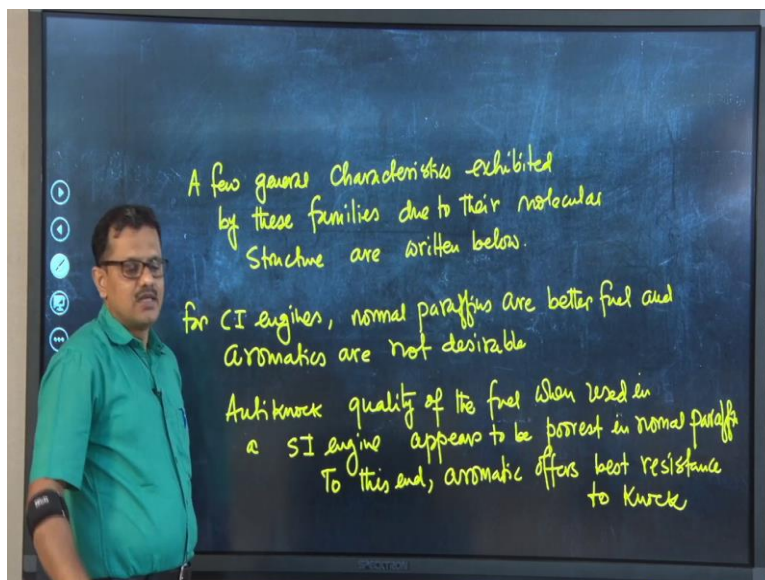 A few general Characteristics exhibited
by these families due to their molecular
Structure are written below.
for CI engines, normal paraffins are better fuel and
aromatics are not desirable
Antiknock quality of the fuel when used in
a SI engine appears to be poorest in normal paraffi
To this end, aromatic offers best resistance
to Knock
SPECKTRON